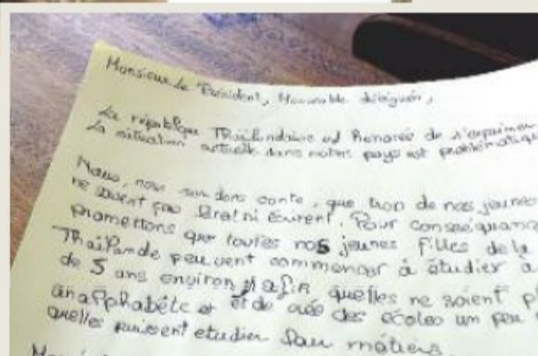 Monsieur le Président, Honorable délégués,
La république Thaïlandaise est honorée de s'exprimer
La situation actuelle dans notre pays est problématique
Nous, nous rendons conte, que trop de nos jeunes
ne savent pas lire ni écrirent. Pour conseiquance
promettons que toutes nos jeunes filles de la
Thaïlande peuvent commencer à étudier à
de 5 ans environ, afin quelles ne soient p
anapphabéte et et de crée des écoles un peu
quelles puissent etudier leur métiers